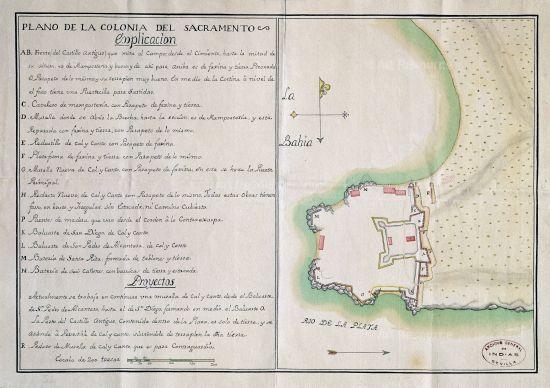 PLANO DE LA COLONIA DEL SACRAMENTO
Explicación
A.B. Frente del Castillo Antiguo, que mira al Campo, desde el Cimiento, hasta la mitad de
su altura, es de Mampostería y buena, y de ahí para Arriba es de faxina y tierra, Revocada
el Parapeto de lo mismo, y su terraplén muy bueno. En medio de la Cortina a nivel de
el foso tiene una Puertecilla para Partidas.
C. Cavallero de mampostería, con Parapeto de faxina y tierra.
D. Muralla donde se Abrio la Brecha, hasta la es de Mampostería, y está
Reparada con faxina y tierra, con Parapeto de lo mismo.
E. Reductillo de Cal y Canto, con Parapeto de faxina.
F. Plataforma de faxina y tierra, con Parapeto de lo mismo.
G. Muralla Nueva de Cal y Canto, con Parapeto de faxina, en esta se hace la Puerta
Principal.
H. Reducto Nuevo, de Cal y Canto con Parapeto de lo mismo. Todas estas Obras tienen
foso, en parte, y Irregular, sin Estacada, ni Camino Cubierto.
P. Puente de madera, que vá desde el Cordón á la Contraescarpa.
K. Baluarte de San Diego de Cal y Canto.
L. Baluarte de San Pedro de Alcantara, de Cal y Canto.
M. Bateria de Santa Rita, formada de tablones y tierra.
N. Bateria de Cañones, con de tierra y
Proyectos
Actualmente se trabaja en Continuar una muralla de Cal y Canto, desde el Baluarte
de Sn. Pedro de Alcantara, hasta el de Sn. Diego, formando en medio el Baluarte A.
La Parte del Castillo Antiguo, Contenida dentro de la Plaza, es solo de tierra, y se
de Cal y Canto, de terraplén la tierra.
R. de Muralla de Cal y Canto que es para Contraguardia.
Escala de 200 tuesas.
La
Bahía
RIO DE LA PLATA
ARCHIVO GENERAL
DE
INDIAS
SEVILLA